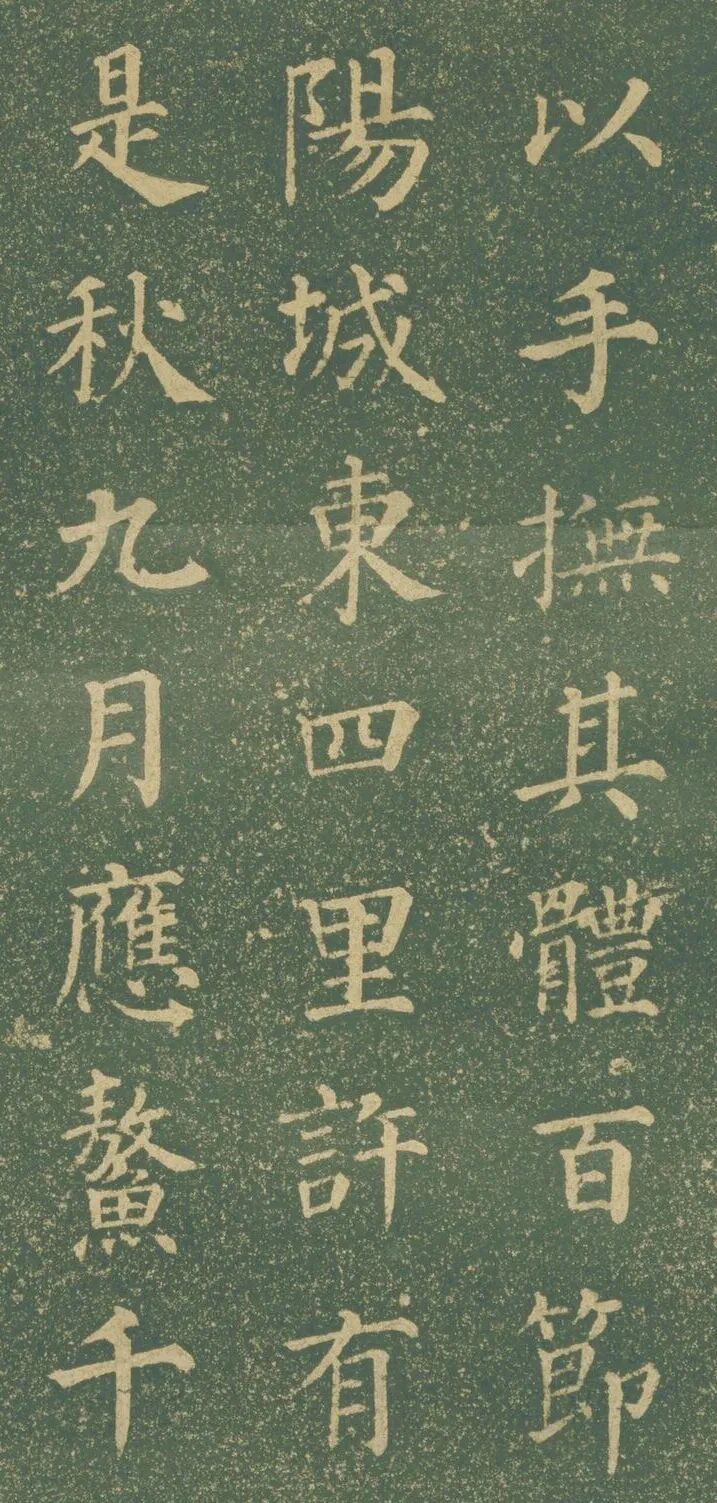 以手撫其體百節
陽城東四里許有
是秋九月應鰲千